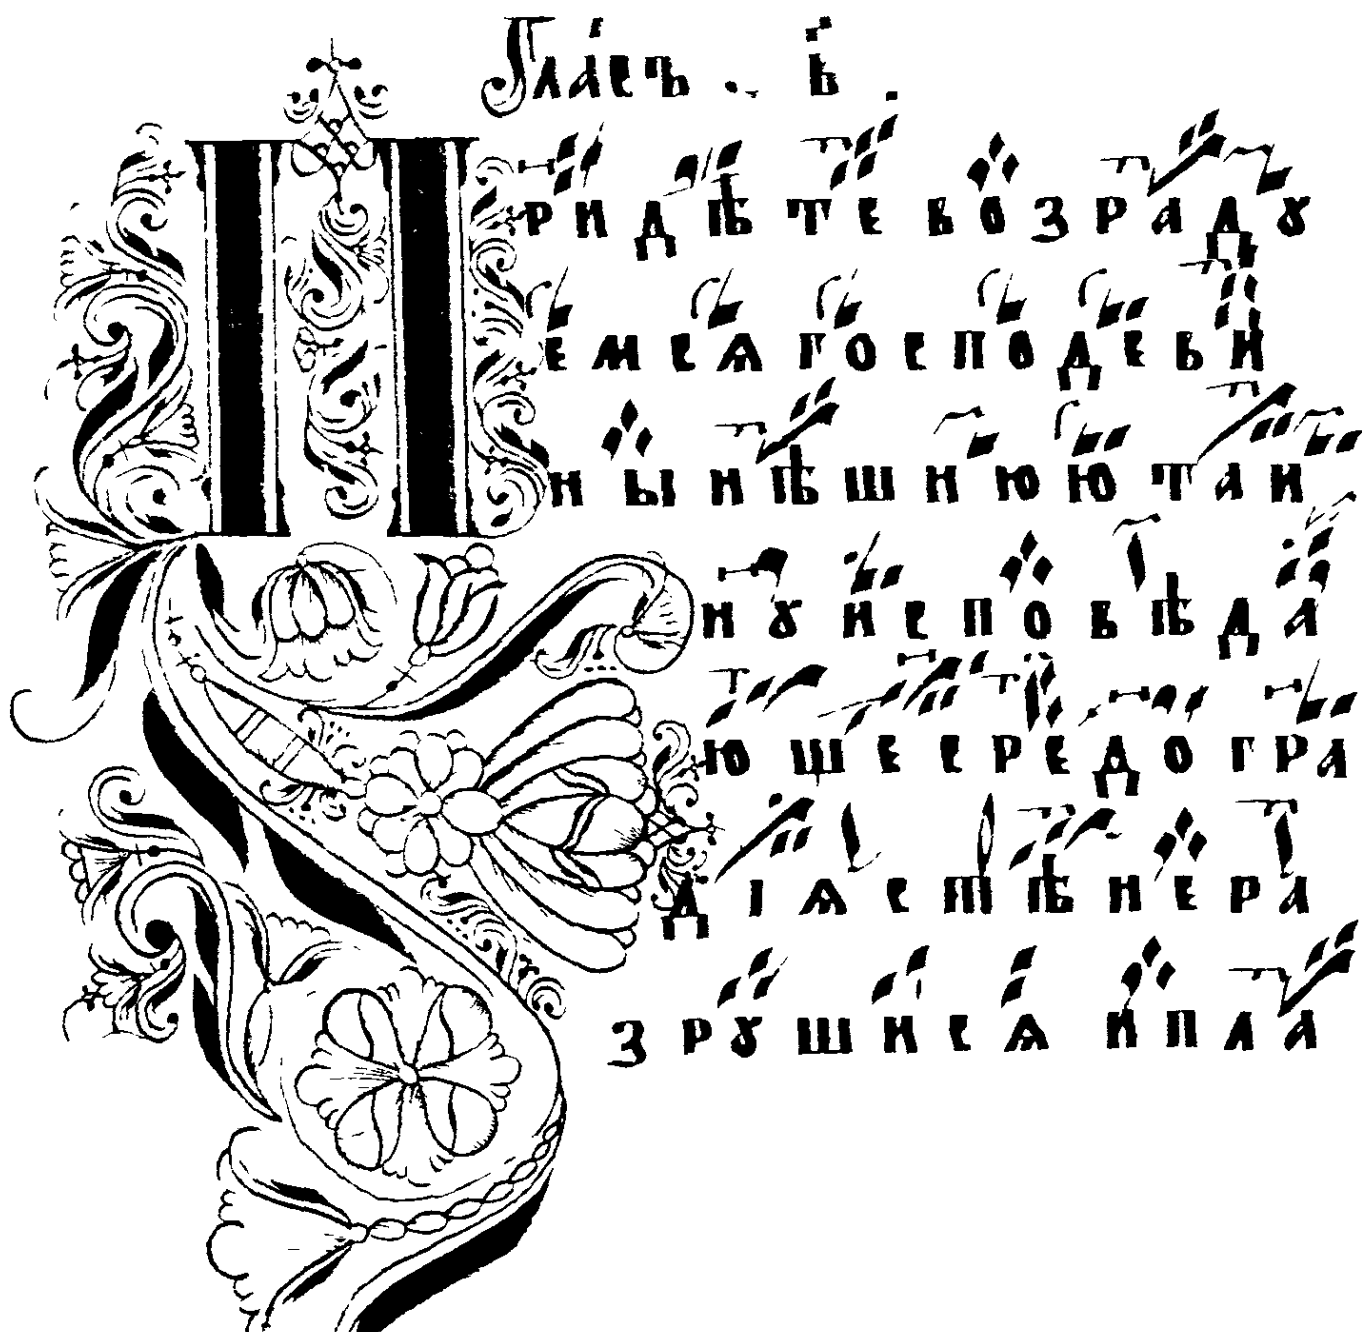 Гла́съ . в҃ .
Придѣте возраду
емсѧ господеви
ны нѣшнюю таи
ну исповѣда
юще средогра
діѧ стѣне ра
зрушисѧ и пла